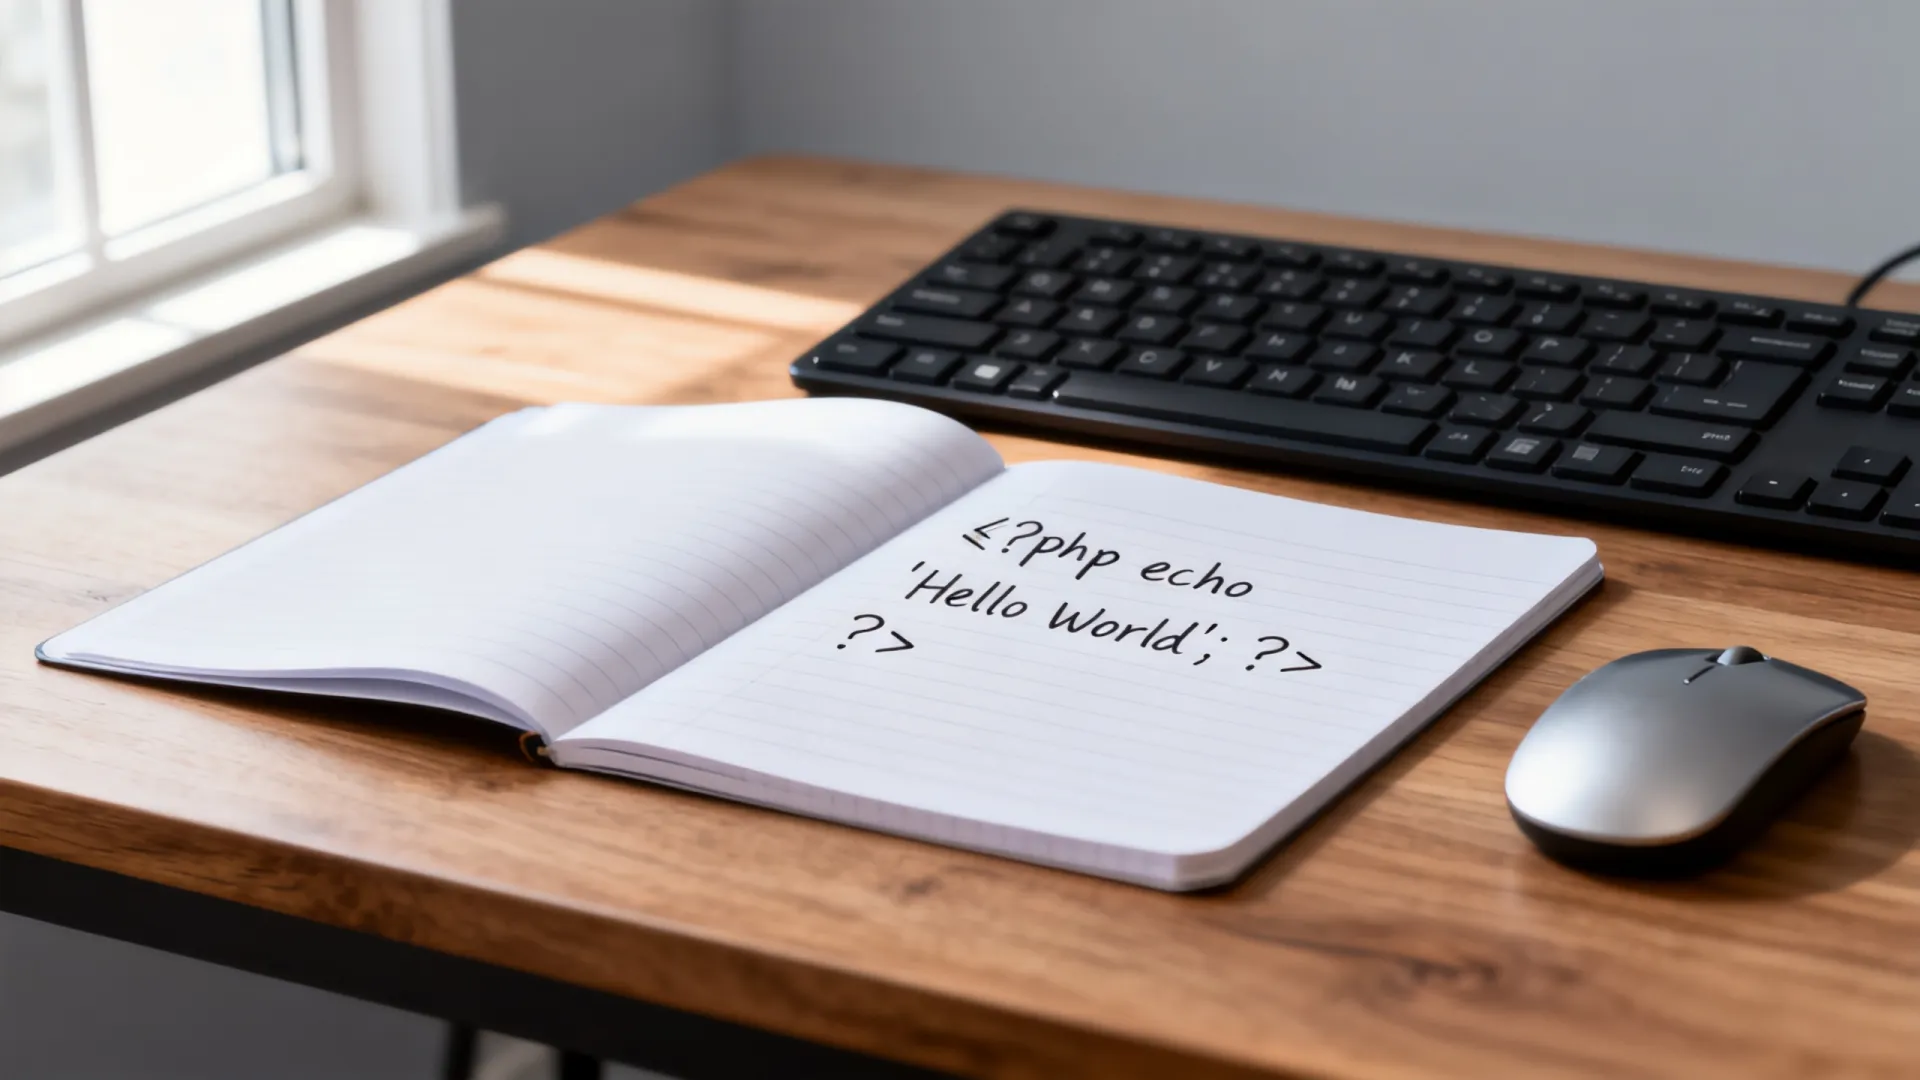 <?php echo
'Hello World'; ?>
?>